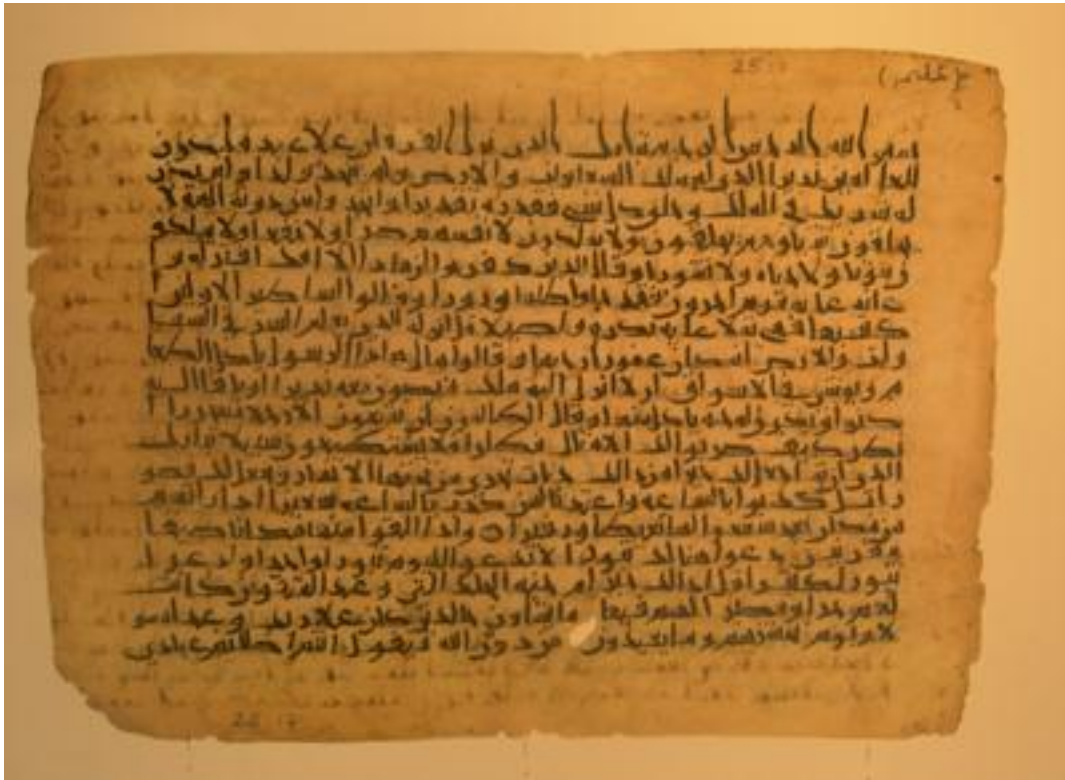 25:1
بسم الله الرحمن الرحيم تبرك الذي نزل الفرقان على عبده ليكون
للعلمين نذيرا الذي له ملك السماوات والارض ولم يتخذ ولدا ولم يكن
له شريك في الملك وخلق كل شي فقدره تقديرا واتخذوا من دونه الهة لا
يخلقون شيا وهم يخلقون ولا يملكون لانفسهم ضرا ولا نفعا ولا يملكو
ن موتا ولا حياة ولا نشورا وقال الذين كفروا ان هذا الا افك افتراه وا
عانه عليه قوم اخرون فقد جاو ظلما وزورا وقالوا اساطير الاولين ا
كتتبها فهي تملا عليه بكرة واصيلا قل انزله الذي يعلم السر في السمو
ت والارض انه كان غفورا رحيما وقالوا مال هذا الرسول ياكل الطعا
م ويمشي في الاسواق لولا انزل اليه ملك فيكون معه نذيرا او يلقا اليه
كنز او تكون له جنة ياكل منها وقال الظلمون ان تتبعون الا رجلا مسحورا ا
نظر كيف ضربوا لك الامثل فضلوا فلا يستطيعون سبيلا تبرك
الذي ان شا جعل لك خيرا من ذلك جنت تجري من تحتها الانهر ويجعل لك قصو
را بل كذبوا بالساعة واعتدنا لمن كذب بالساعة سعيرا اذا راتهم
من مكان بعيد سمعوا لها تغيظا وزفيرا واذا القوا منها مكانا ضيقا
مقرنين دعوا هنالك ثبورا لا تدعوا اليوم ثبورا واحدا وادعوا
ثبورا كثيرا قل اذلك خير ام جنة الخلد التي وعد المتقون كانت
لهم جزا ومصيرا لهم فيها ما يشاون خلدين كان على ربك وعدا مسو
لا ويوم يحشرهم وما يعبدون من دون الله فيقول انتم اضللتم عبادي
25:17